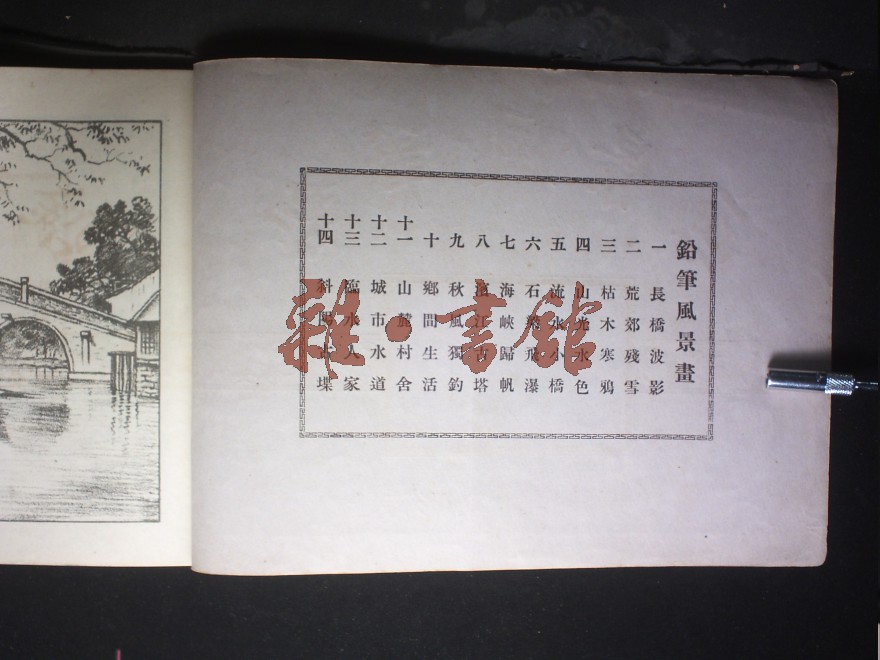 鉛筆風景畫
一 長橋波影
二 荒郊殘雪
三 枯木寒鴉
四 山光水色
五 流水小橋
六 石飛瀑
七 海峽歸帆
八 江古塔
九 秋風獨釣
十 鄉間生活
十一 山麓村舍
十二 城市水道
十三 臨水人家
十四 斜陽堞
雜·書館